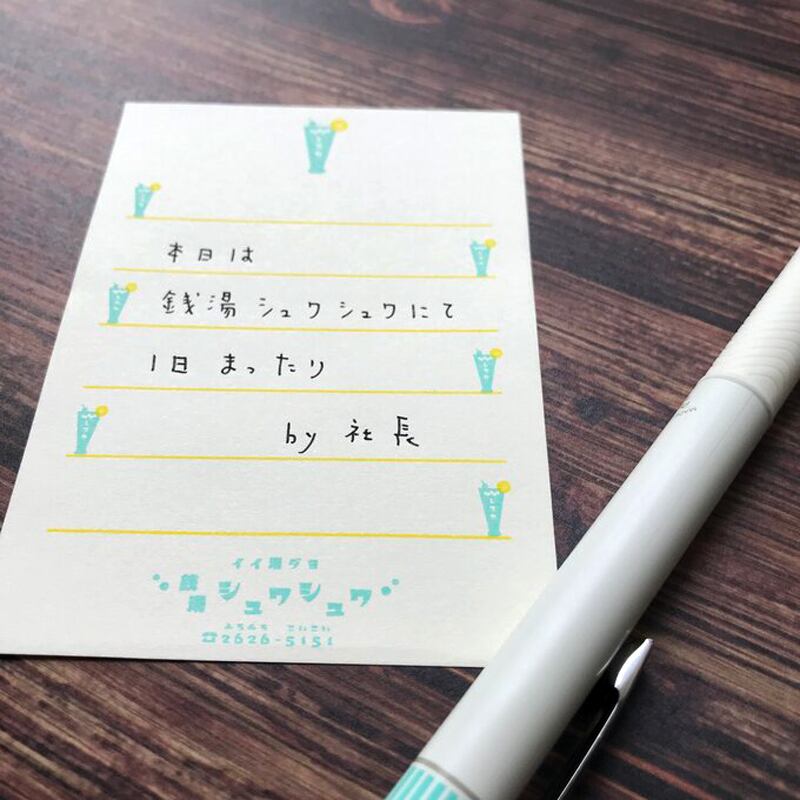 本日は
銭湯シュワシュワにて
1日まったり
by 社長
イイ湯ダヨ
銭湯 シュワシュワ
☎2626-5151